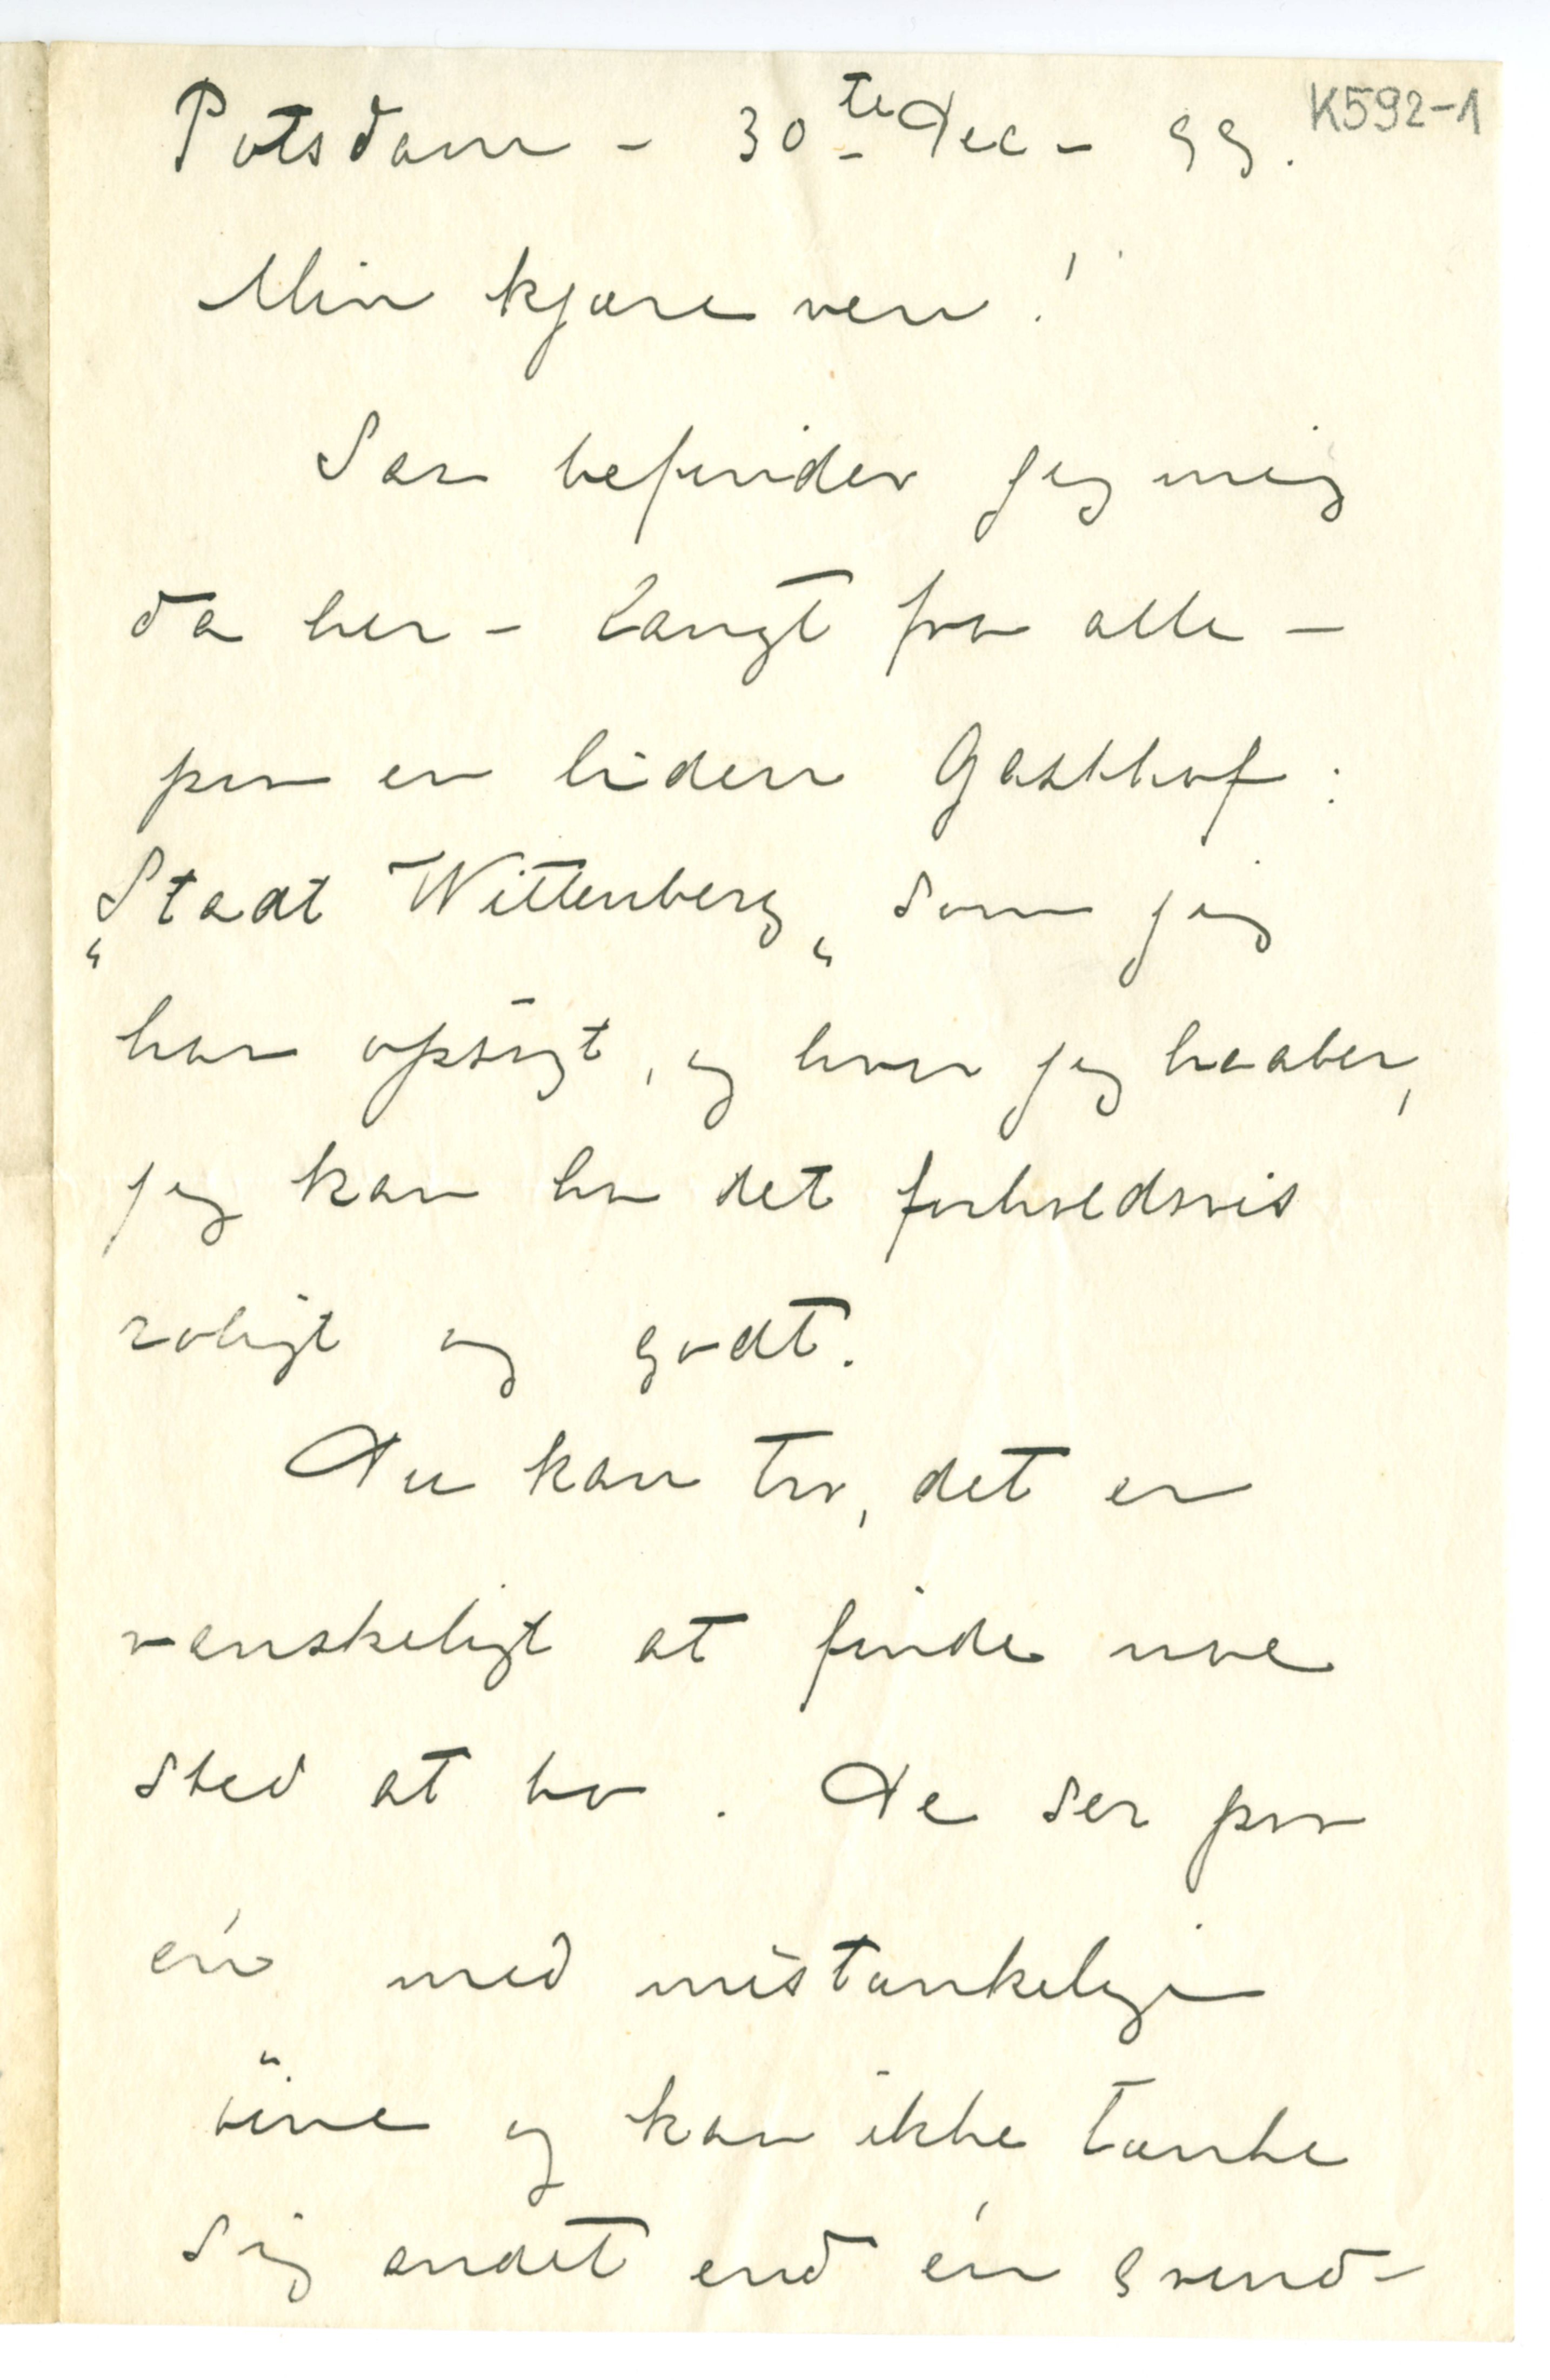 Potsdam – 30te Dec – 99. K592-1
Min kjære ven!
Saa befinder jeg mig
da her – Langt fra alle –
paa en liden Gasthof:
„Stadt Wittenberg„ som jeg
har opsøgt, og hvor jeg haaber,
jeg kan ha det forholdsvis
roligt og godt.
Du kan tro, det er
vanskeligt at finde noe
sted at bo. De ser paa
én med mistænkelige
öine og kan ikke tænke
sig andet end én Grund –